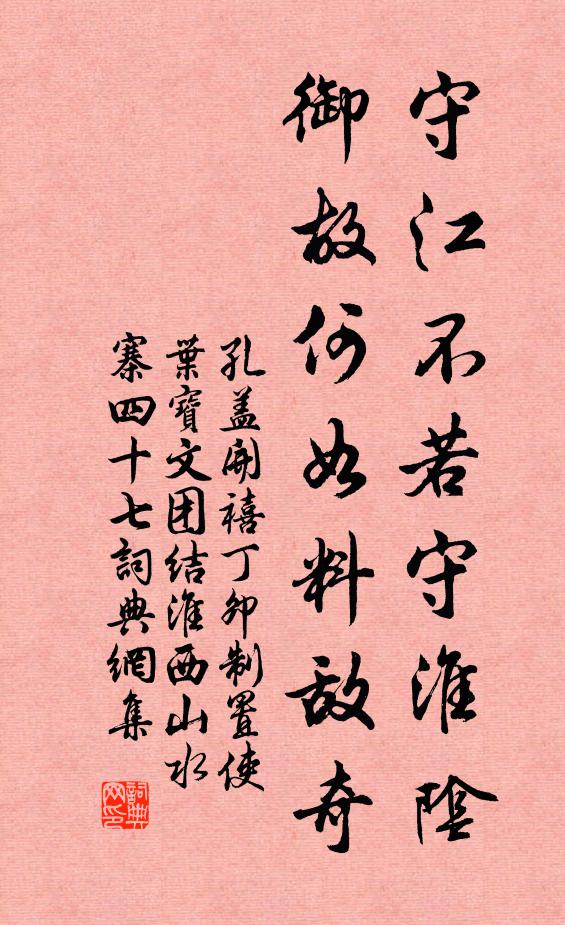 守江不若守淮陰
御敌何如料敌奇
孔盖開禧丁卯制置使
葉寶文团结淮西山水
寨四十七詞典網集
詞典网印